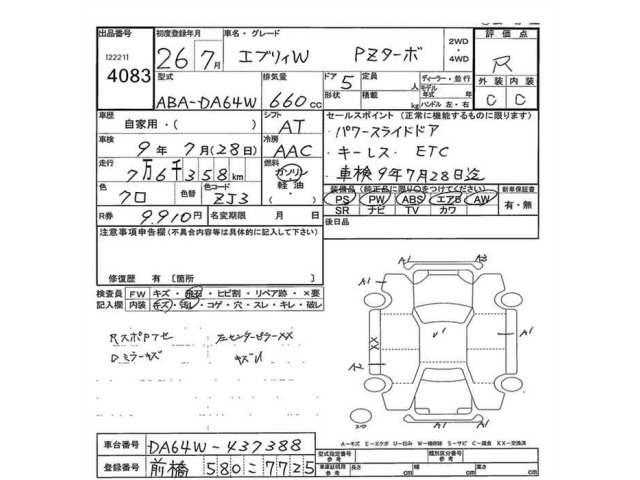 出品番号 初度登録年月 車名・グレード 評価点
122211
4083
26年7月 エブリィW PZターボ 2WD・4WD R
型式 排気量 ドア 定員 ディーラー・並行 外装 内装
ABA-DA64W 660cc 5 人 モデル年式 年 C C
形状 積載 kg ハンドル 左・右
車歴 自家用・( ) シフト AT セールスポイント (正常に機能するものに限ります)
パワースライドドア
車検 9年7月(28日) 冷房 AAC キーレス ETC
走行 7万6千358km 燃料 ガソリン・軽油・( ) 車検9年7月28日迄
色 クロ 色替 色コード ZJ3 装備品(純正品に限り○をつけてください) 新車保証書
PS PW ABS エアB AW 有・無
SR ナビ TV カワ
R券 9,910円 名変期限 月 日 後日品
注意事項申告欄(不具合内容等は具体的に記入して下さい)
修復歴 有 〔箇所 〕
検査員 FW キズ・飛石・ヒビ割・リペア跡・×要
記入欄 内装 キズ・汚レ・コゲ・穴・スレ・キレ・破レ
RスポPTセ 左センターピラーXX
Dミラーキズ キズU
A1 A3 A1
A1 U1 A1
XX
A2
A1 A1
スペア
A−キズ E−エクボ U−凹み W−補修跡 S−サビ C−腐食 XX−交換済
車台番号 DA64W-437388
登録番号 前橋 580 ニ 7725
型式指定番号 参考 類別区分番号 参考
車庫証明用 参考 長さ cm 幅 cm 高さ cm